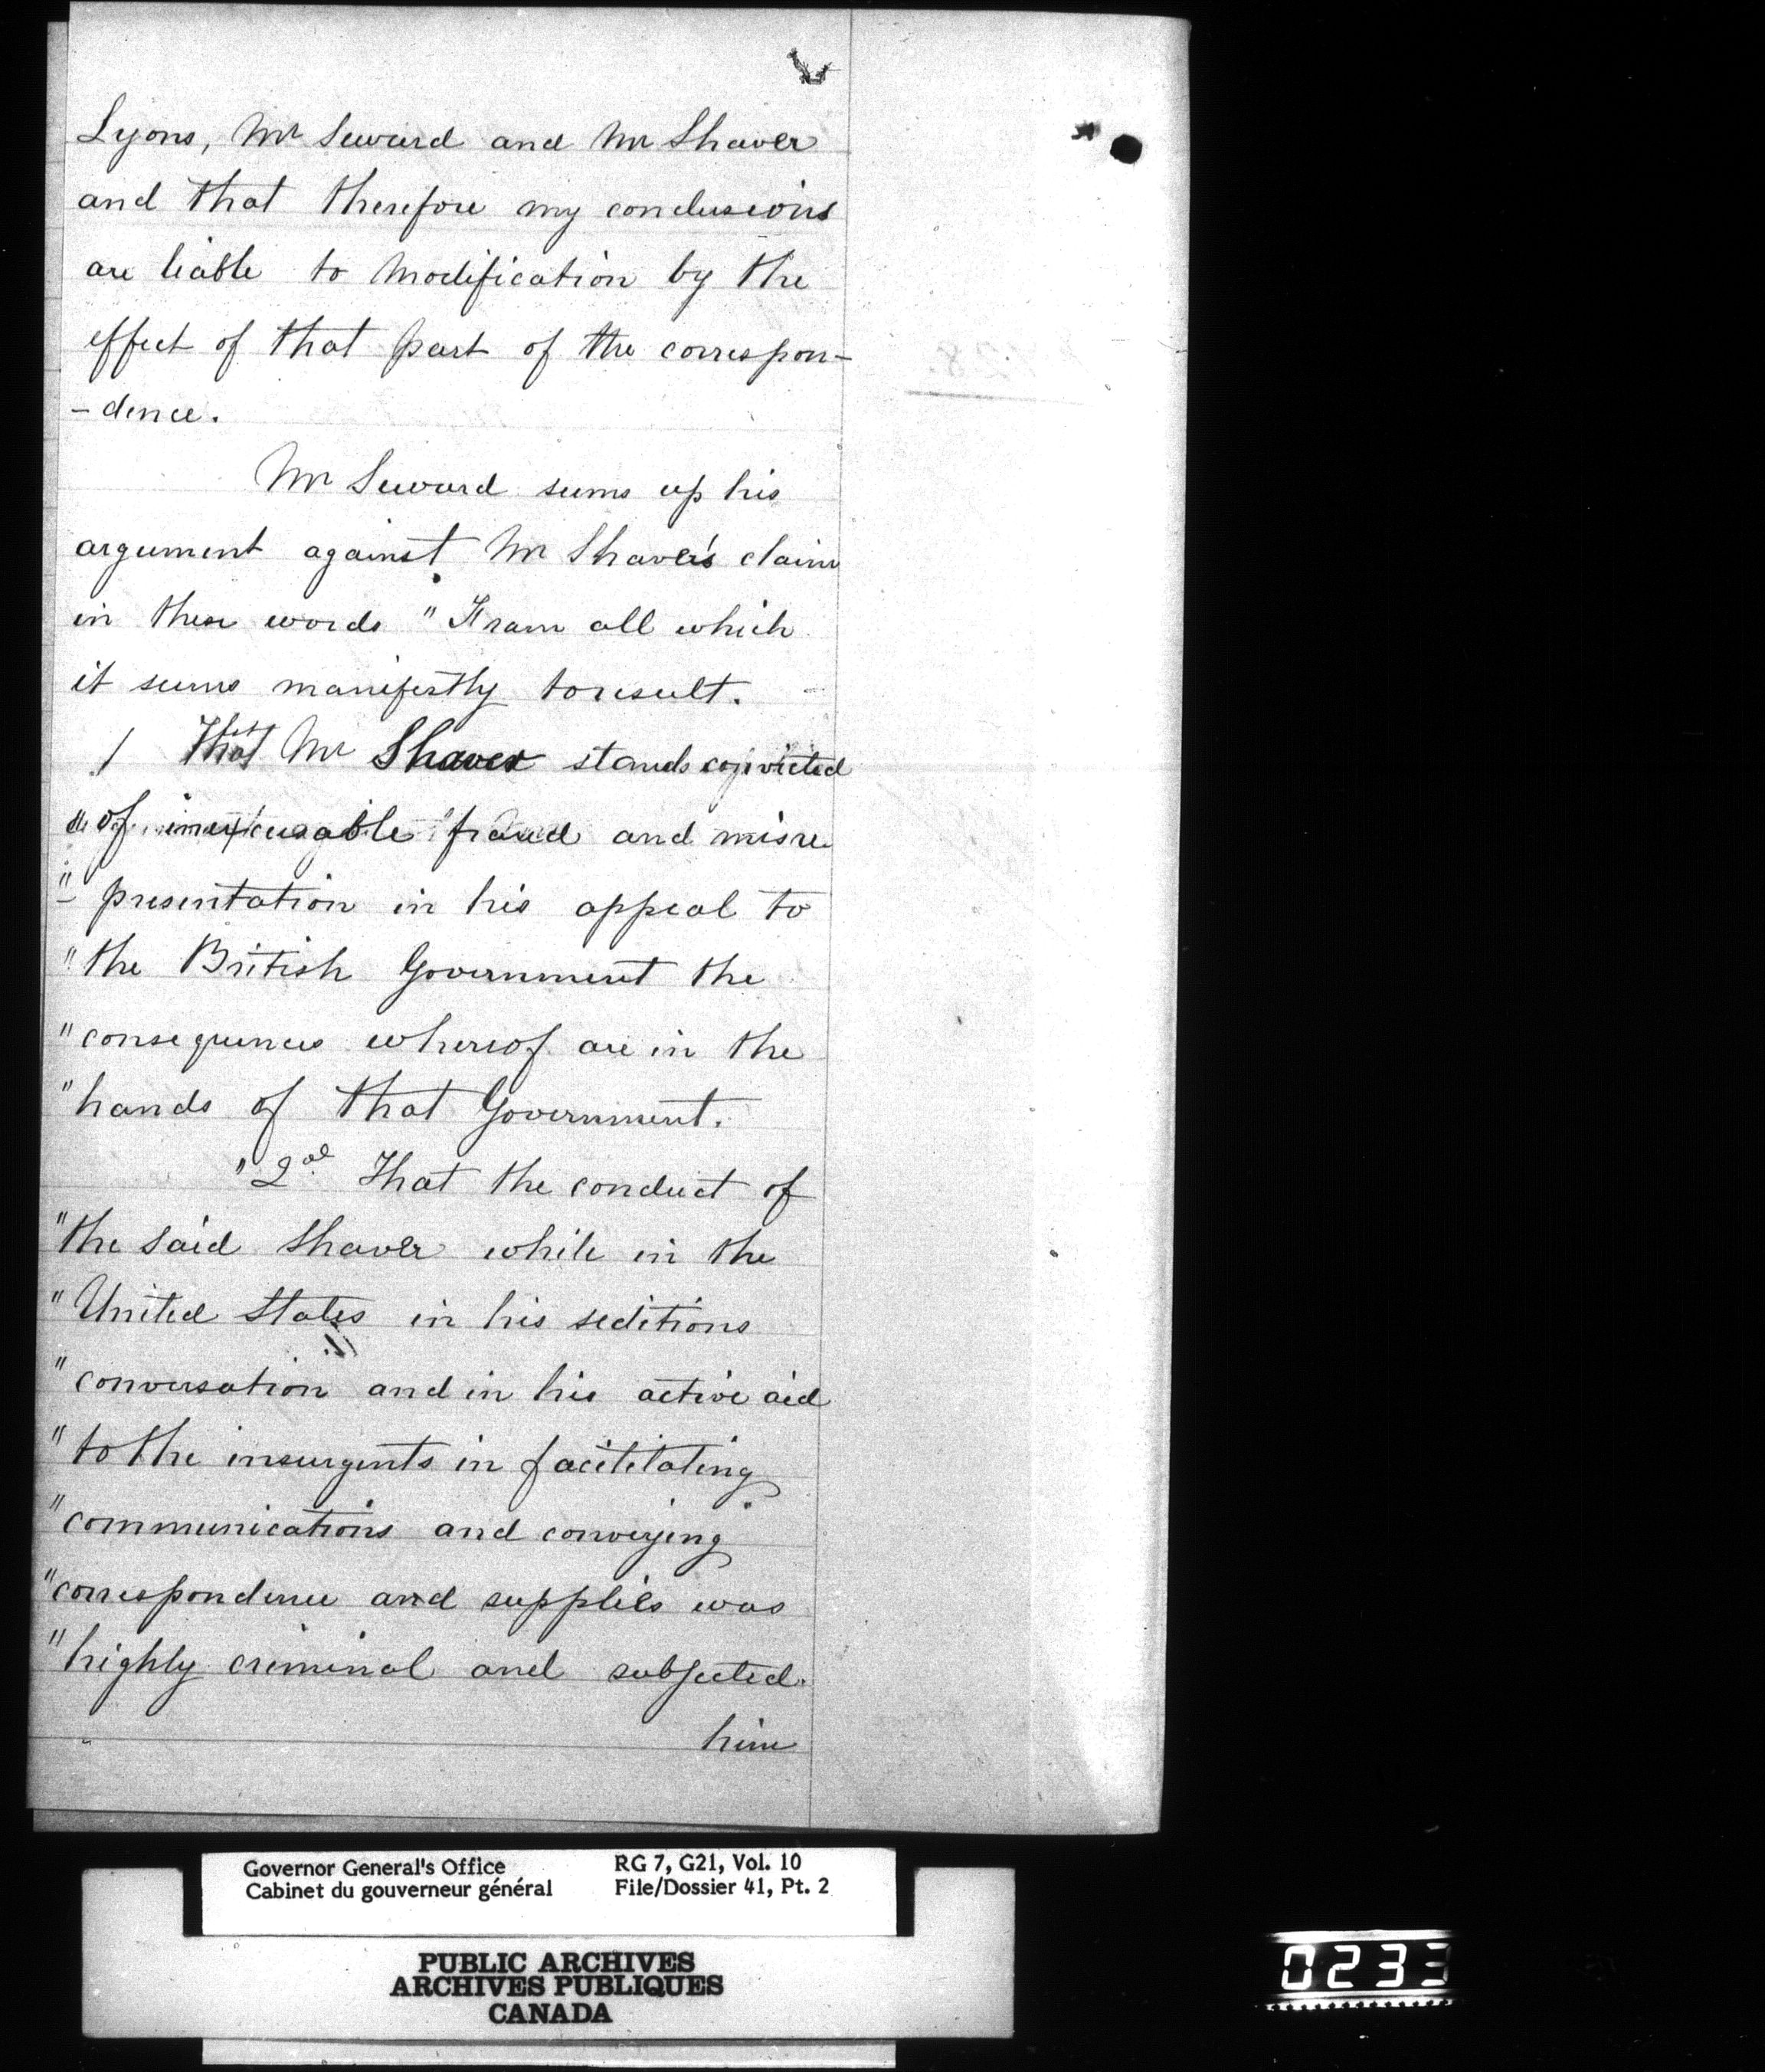 Lyons, Mr Seward and Mr Shaver
and that therefore my conclusions
are liable to modification by the
effect of that part of the correspon-
- dence.
Mr Seward sums up his
argument against Mr Shaver's claim
in these words "From all which
it seems manifestly to result.
1 That Mr Shaver stands convicted
" of inexcusable fraud and misre
"- presentation in his appeal to
" the British Government the
" consequences whereof are in the
" hands of that Government.
" 2d. That the conduct of
" the said Shaver while in the
" United States in his seditions
" conversation and in his active aid
" to the insurgents in facilitating
" communications and conveying
" correspondence and supplies was
" highly criminal and subjected
him
Governor General's Office RG 7, G21, Vol. 10
Cabinet du gouverneur général File/Dossier 41, Pt. 2
PUBLIC ARCHIVES
ARCHIVES PUBLIQUES
CANADA
0233